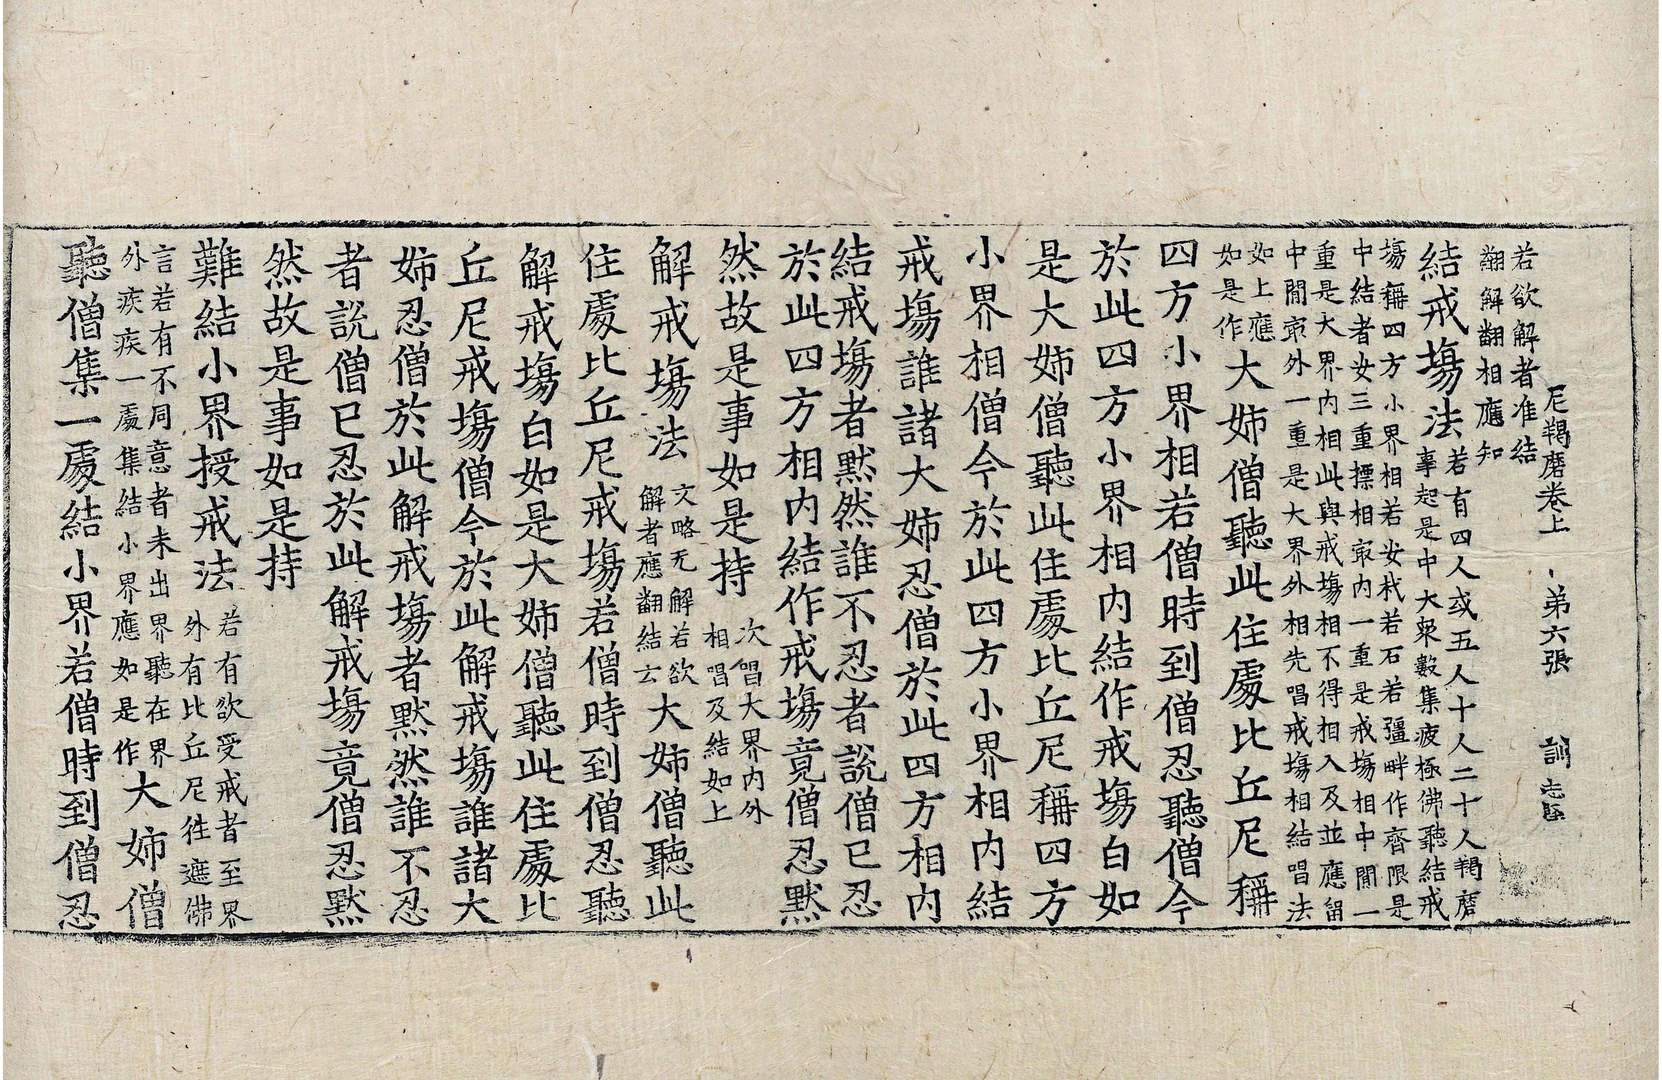 尼羯磨卷上　第六張　訓
若欲解者准結
翻解翻相應知
結戒塲法若有四人或五人十人二十人羯磨
事起是中大衆數集疲極佛聽結戒
塲稱四方小界相若安杙若石若彊畔作齊限是
中結者安三重摽相㝡内一重是戒塲相中閒一
重是大界内相此與戒塲相不得相入及並應留
中閒㝡外一重是大界外相先唱戒塲相結唱法
如上應
如是作
大姊僧聽此住處比丘尼稱
四方小界相若僧時到僧忍聽僧今
於此四方小界相内結作戒塲白如
是大姊僧聽此住處比丘尼稱四方
小界相僧今於此四方小界相内結
戒塲誰諸大姊忍僧於此四方相内
結戒塲者黙然誰不忍者説僧已忍
於此四方相内結作戒塲竟僧忍黙
然故是事如是持
次唱大界内外
相唱及結如上
解戒塲法
文略无解若欲
解者應翻結云
大姊僧聽此
住處比丘尼戒塲若僧時到僧忍聽
解戒塲白如是大姊僧聽此住處比
丘尼戒塲僧今於此解戒塲誰諸大
姊忍僧於此解戒塲者黙然誰不忍
者説僧已忍於此解戒塲竟僧忍黙
然故是事如是持
難結小界授戒法
若有欲受戒者至界
外有比丘尼徃遮佛
言若有不同意者未出界聽在界
外疾疾一處集結小界應如是作
大姊僧
聽僧集一處結小界若僧時到僧忍